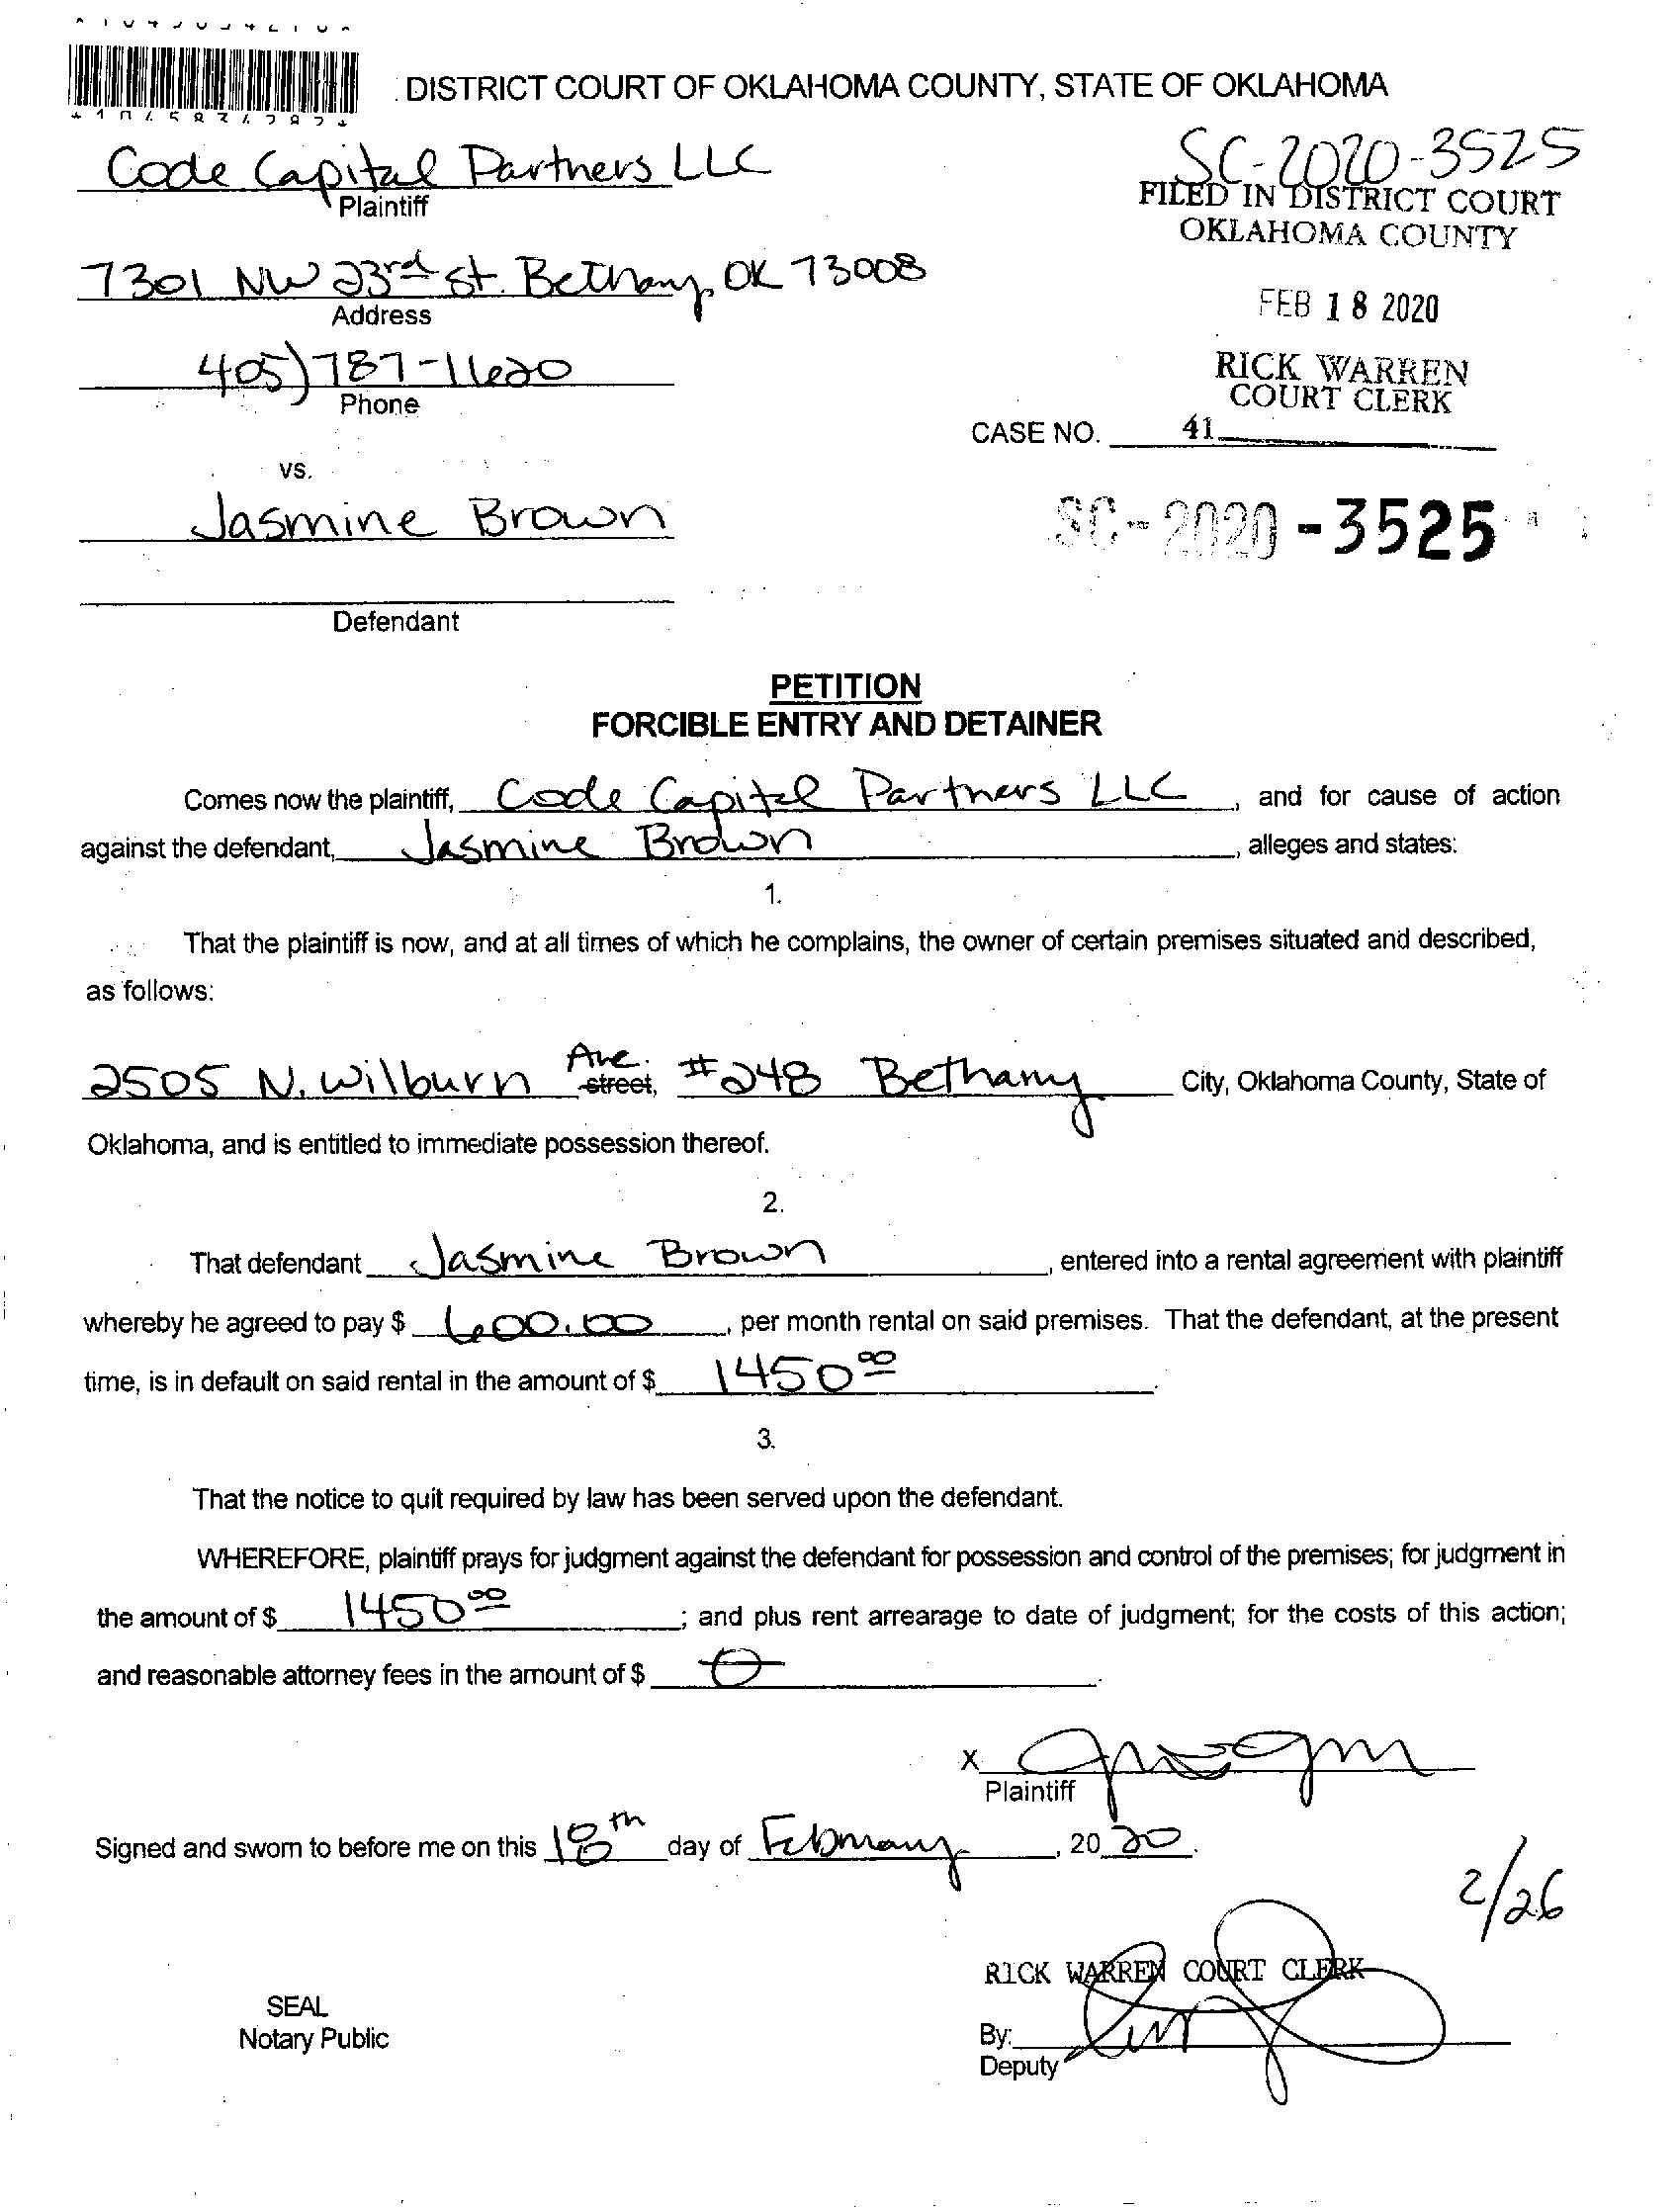 DISTRICT COURT OF OKLAHOMA COUNTY, STATE OF OKLAHOMA
Code Capital Partners LLC
Plaintiff
SC-2020-3525
FILED IN DISTRICT COURT
OKLAHOMA COUNTY
7301 NW 23rd St. Bethany, OK 73008
Address
FEB 18 2020
405) 787-1620
Phone
RICK WARREN
COURT CLERK
CASE NO. 41
vs.
Jasmine Brown
SC-2020-3525
Defendant
PETITION
FORCIBLE ENTRY AND DETAINER
Comes now the plaintiff, Code Capital Partners LLC, and for cause of action
against the defendant, Jasmine Brown, alleges and states:
1.
That the plaintiff is now, and at all times of which he complains, the owner of certain premises situated and described,
as follows:
2505 N. Wilburn Ave. street, #248 Bethany City, Oklahoma County, State of
Oklahoma, and is entitled to immediate possession thereof.
2.
That defendant Jasmine Brown, entered into a rental agreement with plaintiff
whereby he agreed to pay $ 600.00, per month rental on said premises. That the defendant, at the present
time, is in default on said rental in the amount of $ 1450 00.
3.
That the notice to quit required by law has been served upon the defendant.
WHEREFORE, plaintiff prays for judgment against the defendant for possession and control of the premises; for judgment in
the amount of $ 1450 00; and plus rent arrearage to date of judgment; for the costs of this action;
and reasonable attorney fees in the amount of $ 0.
X
Plaintiff
Signed and sworn to before me on this 18th day of February, 20 20.
2/26
RICK WARREN COURT CLERK
SEAL
Notary Public
By:
Deputy